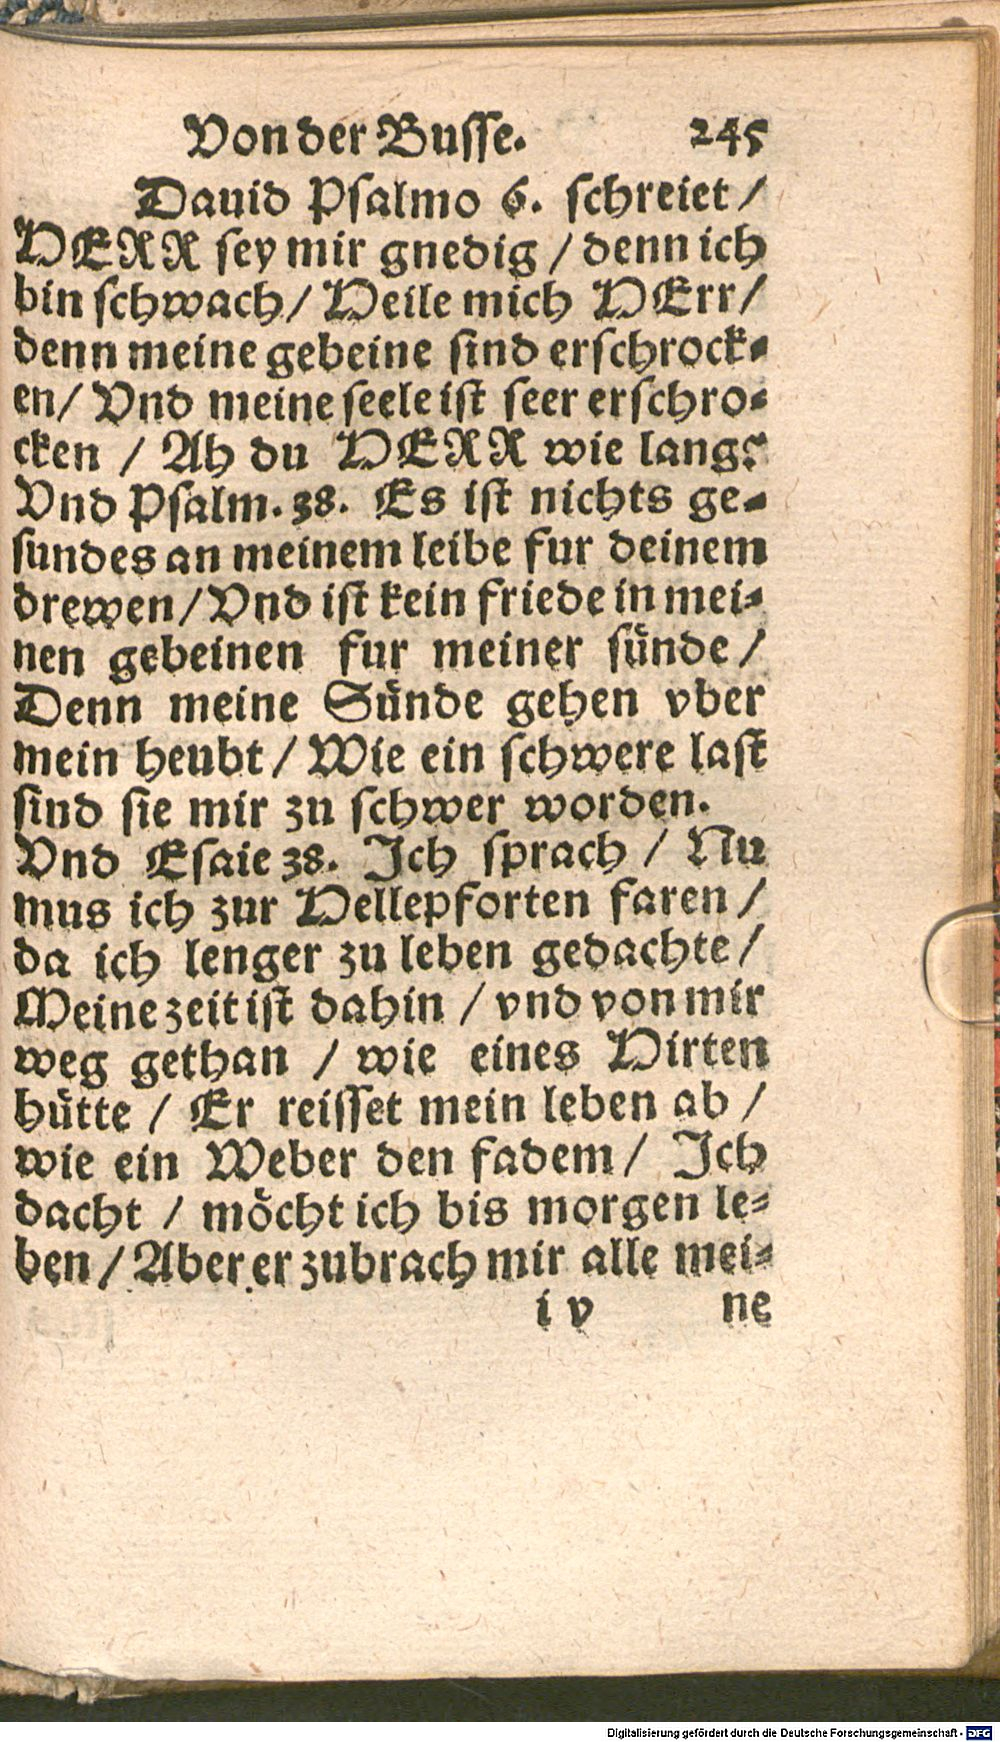 Von der Busse. 245
Dauid Psalmo 6. schreiet /
HERR sey mir gnedig / denn ich
bin schwach / Heile mich HErr /
denn meine gebeine sind erschrock-
en / Vnd meine seele ist seer erschro-
cken / Ah du HERR wie lang?
Vnd Psalm. 38. Es ist nichts ge-
sundes an meinem leibe fur deinem
drewen / Vnd ist kein friede in mei-
nen gebeinen fur meiner sünde /
Denn meine Sünde gehen vber
mein heubt / Wie ein schwere last
sind sie mir zu schwer worden.
Vnd Esaie 38. Ich sprach / Nu
mus ich zur Hellepforten faren /
da ich lenger zu leben gedachte /
Meine zeit ist dahin / vnd von mir
weg gethan / wie eines Hirten
hütte / Er reisset mein leben ab /
wie ein Weber den fadem / Ich
dacht / möcht ich bis morgen le-
ben / Aber er zubrach mir alle mei-
i v ne
Digitalisierung gefördert durch die Deutsche Forschungsgemeinschaft - DFG